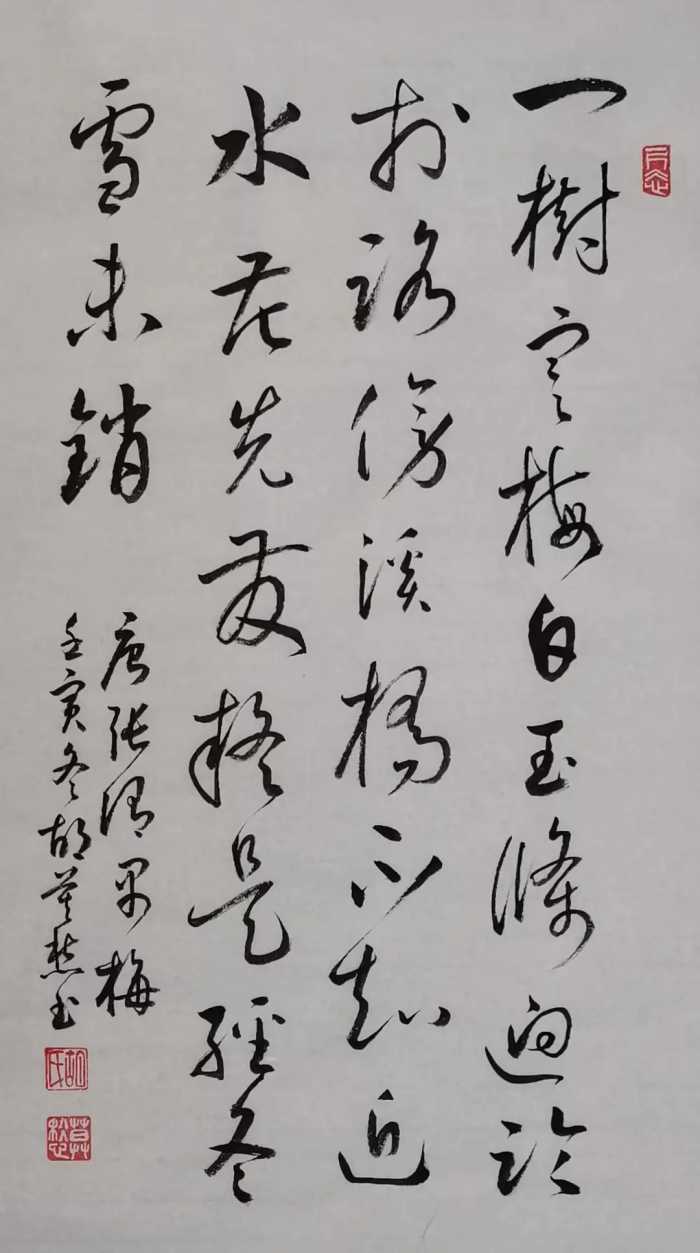 一樹寒梅白玉條迥臨
村路傍溪橋不知近
水花先發疑是經冬
雪未銷
唐張謂早梅
壬寅冬胡书
胡氏